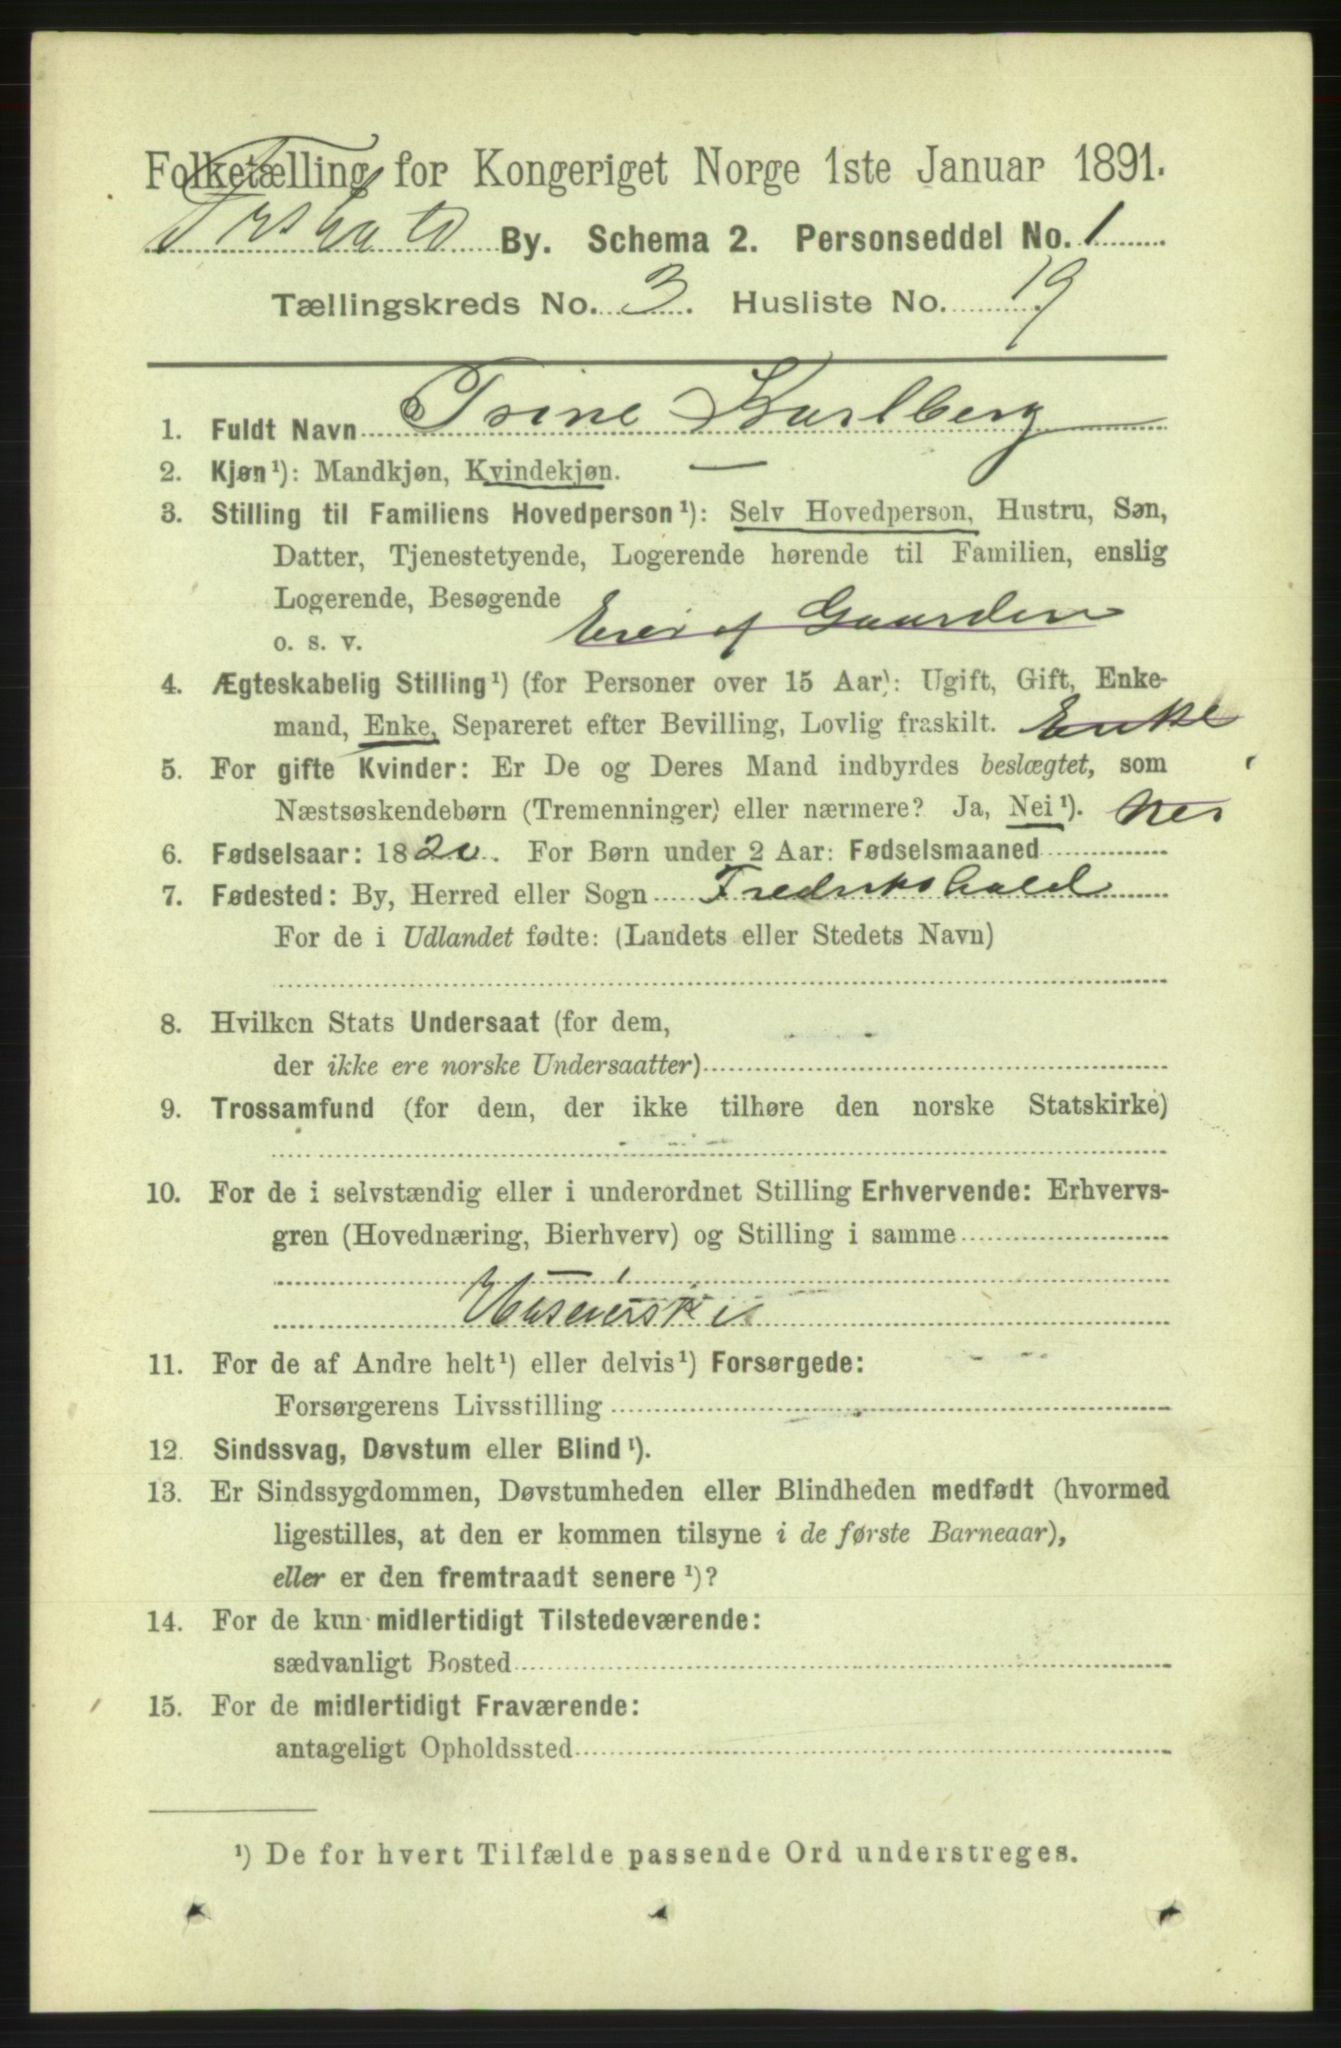 Folketælling for Kongeriget Norge 1ste Januar 1891.
By. Schema 2. Personseddel No. 1
Tællingskreds No. 3. Husliste No. 19
1. Fuldt Navn Trine Karlberg
2. Kjøn¹): Mandkjøn, Kvindekjøn. —
3. Stilling til Familiens Hovedperson¹): Selv Hovedperson, Hustru, Søn,
Datter, Tjenestetyende, Logerende hørende til Familien, enslig
Logerende, Besøgende
o. s. v. Eier af Gaarden
4. Ægteskabelig Stilling¹) (for Personer over 15 Aar): Ugift, Gift, Enke-
mand, Enke, Separeret efter Bevilling, Lovlig fraskilt. Enke
5. For gifte Kvinder: Er De og Deres Mand indbyrdes beslægtet, som
Næstsøskendebørn (Tremenninger) eller nærmere? Ja, Nei¹). Nei
6. Fødselsaar: 1820. For Børn under 2 Aar: Fødselsmaaned
7. Fødested: By, Herred eller Sogn Fredrikshald
For de i Udlandet fødte: (Landets eller Stedets Navn)
8. Hvilken Stats Undersaat (for dem,
der ikke ere norske Undersaatter)
9. Trossamfund (for dem, der ikke tilhøre den norske Statskirke)
10. For de i selvstændig eller i underordnet Stilling Erhvervende: Erhvervs-
gren (Hovednæring, Bierhverv) og Stilling i samme
11. For de af Andre helt¹) eller delvis¹) Forsørgede:
Forsørgerens Livsstilling
12. Sindssvag, Døvstum eller Blind¹).
13. Er Sindssygdommen, Døvstumheden eller Blindheden medfødt (hvormed
ligestilles, at den er kommen tilsyne i de første Barneaar),
eller er den fremtraadt senere¹)?
14. For de kun midlertidigt Tilstedeværende:
sædvanligt Bosted
15. For de midlertidigt Fraværende:
antageligt Opholdssted
¹) De for hvert Tilfælde passende Ord understreges.